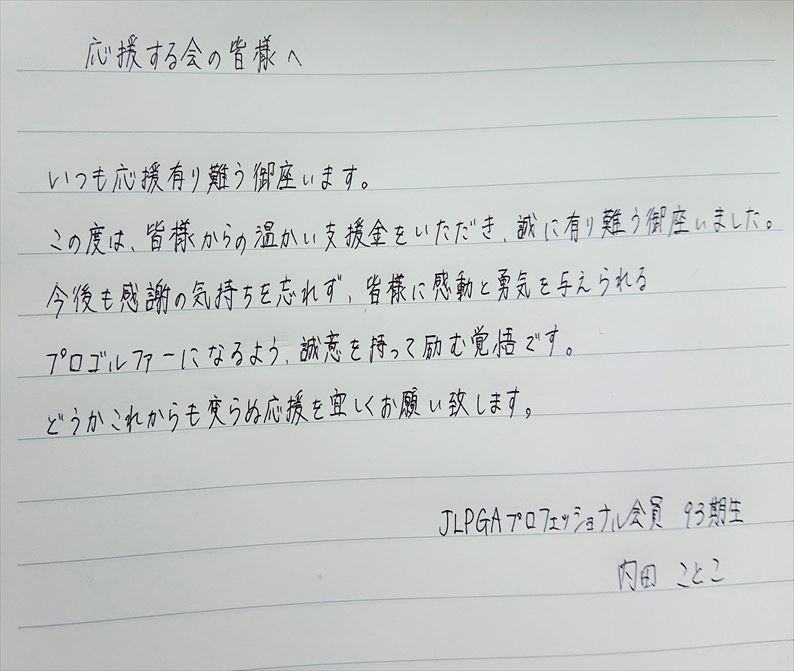 応援する会の皆様へ
いつも応援有り難う御座います。
この度は、皆様からの温かい支援金をいただき、誠に有り難う御座いました。
今後も感謝の気持ちを忘れず、皆様に感動と勇気を与えられる
プロゴルファーになるよう、誠意を持って励む覚悟です。
どうかこれからも変らぬ応援を宜しくお願い致します。
JLPGAプロフェッショナル会員 93期生
内田 ことこ